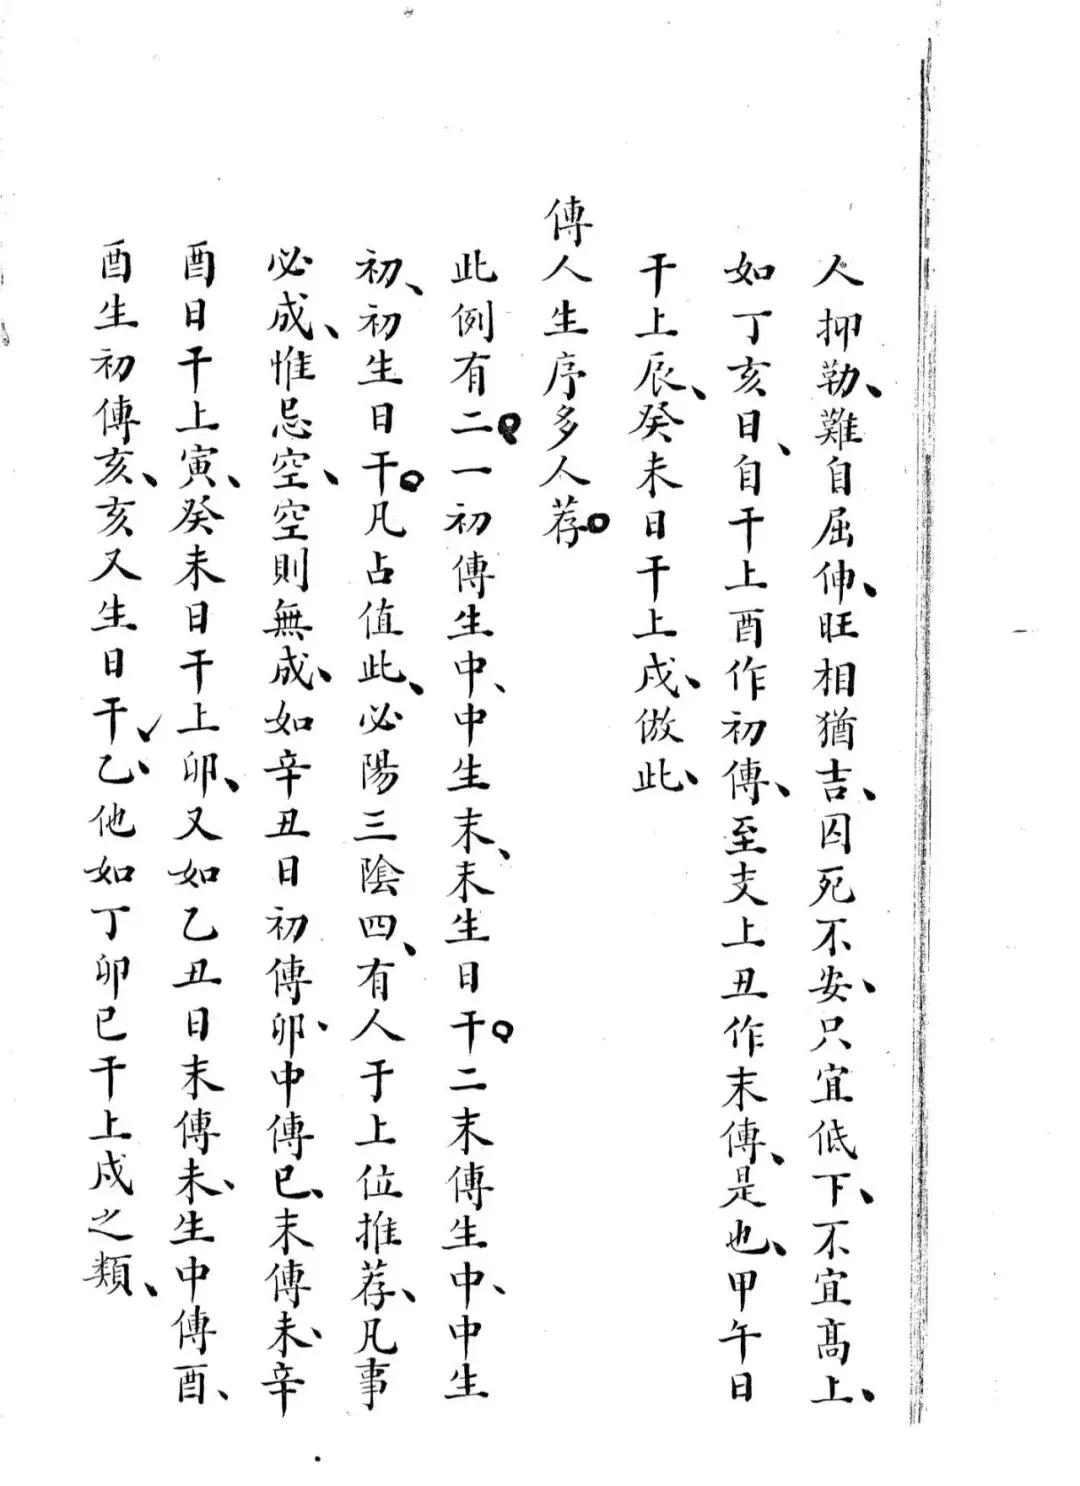 人抑勒、難自屈伸、旺相猶吉、囚死不安、只宜低下、不宜高上、
如丁亥日、自干上酉作初傳、至支上丑作末傳、是也、甲午日
干上辰、癸未日干上戌、倣此、
傳人生序多人荐。
此例有二。一初傳生中、中生末、末生日干。二末傳生中、中生
初、初生日干。凡占值此、必陽三陰四、有人于上位推荐、凡事
必成、惟忌空、空則無成、如辛丑日初傳卯、中傳巳、末傳未、辛
酉日干上寅、癸未日干上卯、又如乙丑日末傳未、生中傳酉、
酉生初傳亥、亥又生日干乙、他如丁卯巳干上戌之類、